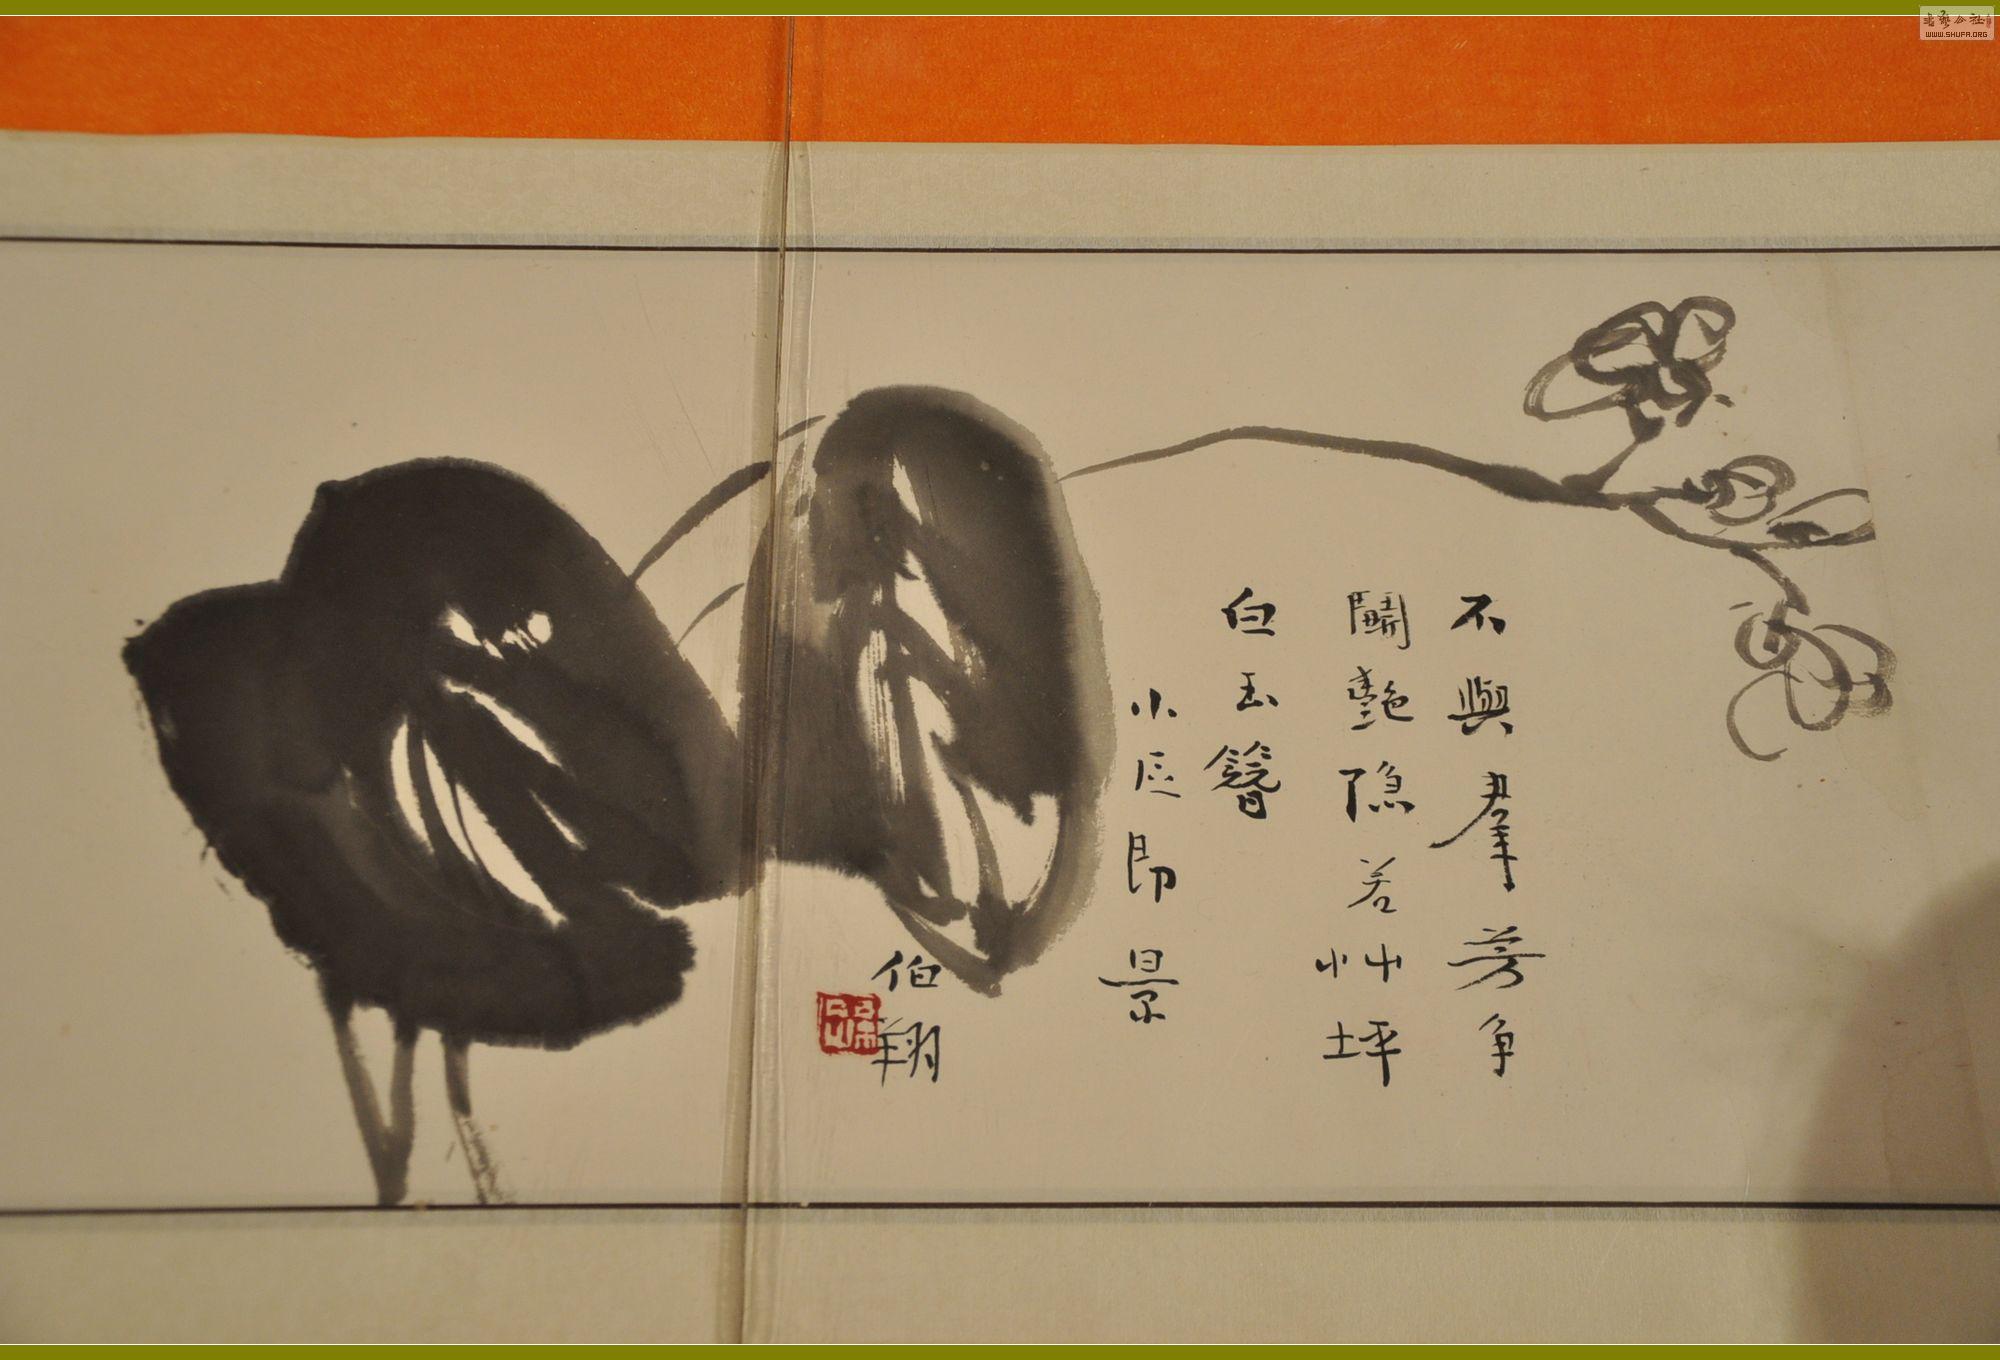 不與羣芳争
鬭艷隐若艸坪
白玉簪
小區即景
伯翔
書藝公社
WWW.SHUFA.ORG